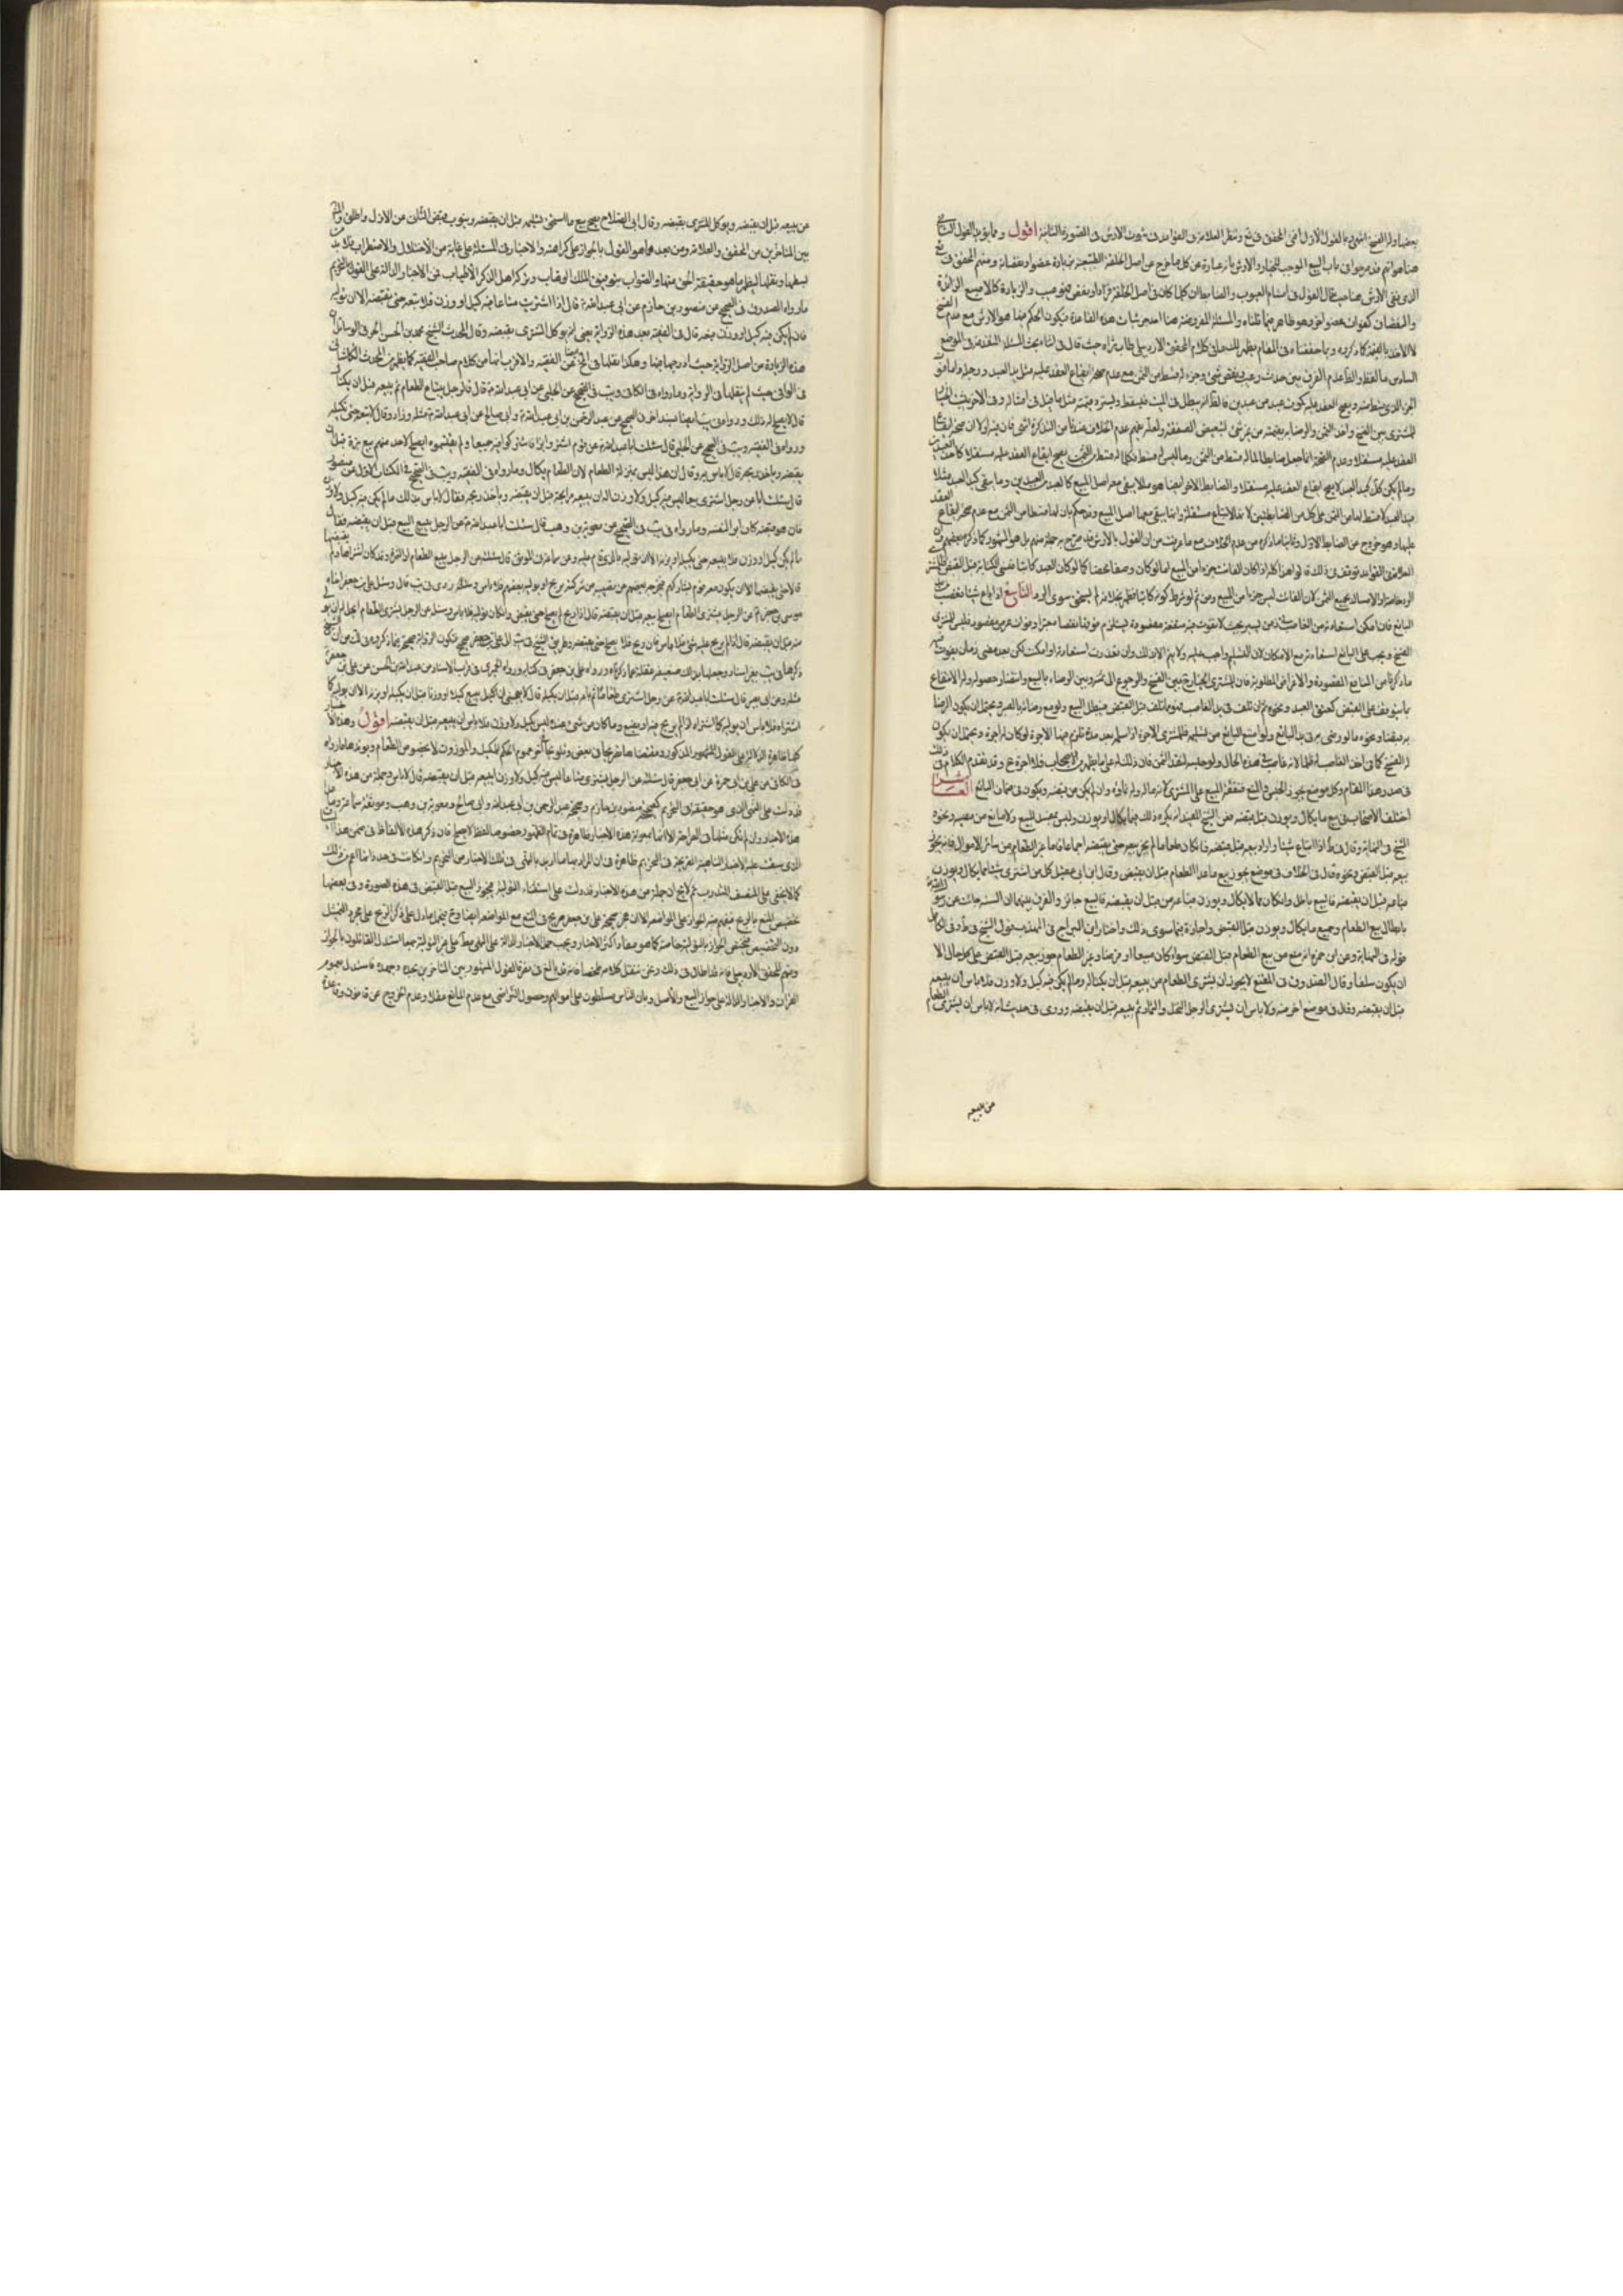 بعضها وله الفسخ انتهى وبالقول الاول افتى المحقق في يع ونظر العلامة في القواعد في ثبوت الارش في الصورة الثانية اقول ومما يؤيد القول الثاني
هنا هو انهم قد صرحوا في باب العيب الموجب للخيار والارش بانه عبارة عن كل ما خرج عن اصل الخلقة الطبيعية بزيادة عضو او نقصانه ومنهم المحقق في يع
الذي نفى الارش هنا حيث قال القول في اقسام العيوب والضابط ان كلما كان في اصل الخلقة فزاد او نقص فهو عيب والزيادة كالاصبع الزائدة
والنقصان كفوات عضو لا لرد وهو ظاهر فيما قلناه والمسئلة المفروضة هنا احد جزئيات هذه القاعدة فيكون الحكم فيها هو الارش مع عدم الفسخ
لا الاخذ بالقيمة كما ذكروه وبما حققناه في المقام يظهر لك ما في كلام المحقق الاردبيلي طاب ثراه حيث قال في اثناء بحث المسئلة المتقدمة في الموضع
السادس ما لفظه والظ عدم الفرق بين حدوث عيب ونقص شئ وجزء له قسط من الثمن مع عدم صحة ايقاع العقد عليه مثل يد العبد ورجله واما فوت
الجزء الذي ينقسط منه ويصح العقد عليه كموت عبد من عبدين فالظ انه يبطل في الميت فيسقط ويسترد قيمته مثل ما قيل في امثاله وفي الاخر يثبت الخيار
للمشتري بين الفسخ واخذ الثمن والرضاء به بقيمته من غير شئ لتبعيض الصفقة ولعله بهم عدم الخلاف عندنا من التذكرة انتهى فان فيه اولا ان صحة ايقاع
العقد عليه مستقلا وعدم الصحة انما جعل ضابطا لما له قسط من الثمن وما ليس له قسط فكلما له قسط من الثمن يصح ايقاع العقد عليه مستقلا كاحد العبدين
وما لم يكن كك كيد العبد لا يصح ايقاع العقد عليه مستقلا والضابط الاخر ايضا هو ما لا يبقى معه اصل المبيع كالعبد من العبدين وما يبقى كيد العبد مثلا
فيد العبد لا قسط لها من الثمن على كل من الضابطين لانها لا تباع مستقلة وانما يبقى معها اصل المبيع وقد حكم بان لها قسطا من الثمن مع عدم صحة ايقاع العقد
عليها وهو خروج عن الضابط الاول وثانيا ما ذكره من عدم الخلاف مع ما عرفت من ان القول بالارش قد صرح به جملة منهم بل هو المشهور كما ذكره بعضهم وان
العلامة في القواعد توقف في ذلك قالوا هذا كله اذا كان الفائت جزءا من المبيع اما لو كان وصفا محضا كما لو كان العبد كاتبا فنسي الكتابة قبل القبض فللمشتري
الرد خاصة او الامساك بجميع الثمن لان الفائت ليس جزءا من المبيع ومن ثم لو شرط كونه كاتبا فظهر بخلافه لم يستحق سوى الرد التاسع اذا باع شيئا فغصب من يد
البائع فان امكن استعادته من الغاصب في زمن يسير بحيث لا يفوت فيه منفعة مقصودة يستلزم فوتها نقصا معتبرا وفوات غرض مقصود فليس للمشتري
الفسخ ويجب على البائع استعادته مع الامكان لان التسليم واجب عليه ولا يتم الا بذلك وان تعذرت استعادته او امكنت لكن بعد مضي زمان يفوت فيه
ما ذكرنا من المنافع المقصودة والاغراض المطلوبة فان للمشتري الخيار فيه بين الفسخ والرجوع الى ثمنه وبين الرضاء بالمبيع وانتظار حصوله وله الانتفاع
بما يتوقف على القبض كعتق العبد ونحوه ثم ان تلف في يد الغاصب فهو مما تلف قبل القبض فيبطل البيع ولو مع رضائه بالصبر ويحتمل ان يكون الرضا
به قبضا ونحوه ما لو رضي به في يد البائع ولو امتنع البائع من تسليمه فللمشتري الاجرة اذا سلم بعد مدة تلزم فيها الاجرة لو كان له اجرة ويحتمل ان يكون
له الفسخ كما في اخذ الغاصب ظلما لانه غاصب في هذه الحال ولو حبسه لنقد الثمن فان ذلك له على ما يظهر من الاصحاب فلا اجرة مع وقد تقدم الكلام في ذلك
في صدر هذا المقام وكل موضع يجوز له الحبس والمنع فنفقة المبيع على المشتري لانه ماله وله نماؤه وان لم يكن من قبضه ويكون في ضمان البائع العاشر
اختلف الاصحاب في بيع ما يكال ويوزن قبل قبضه فعن الشيخ المفيد انه يكره ذلك فيما يكال او يوزن وليس بمفسد للبيع ولا مانع من مضيه ونحوه
الشيخ في النهاية وقال في ط اذا ابتاع شيئا واراد بيعه قبل قبضه فان كان طعاما لم يجز بيعه حتى يقبضه اجماعا فاما غير الطعام من سائر الاموال فانه يجوز
بيعه قبل القبض ونحوه قال في الخلاف في موضع يجوز بيع ما عدا الطعام قبل ان يقبض وقال ابن ابي عقيل كل من اشترى شيئا مما يكال او يوزن
فباعه قبل ان يقبضه فالبيع باطل وان كان مما لا يكال ويوزن فباعه من قبل ان يقبضه فالبيع جائز والفرق بينهما ان السنة جاءت عن رسول الله
بابطال بيع الطعام وجميع ما يكال ويوزن قبل القبض واجازه فيما سوى ذلك واختار ابن البراج في المهذب قول الشيخ في ط وفي الكامل
قوله في النهاية وعن ابن حمزة انه منع من بيع الطعام قبل القبض سواء كان مبيعا او قرضا وغير الطعام جوز بيعه قبل القبض على كل حال الا
ان يكون سلفا وقال الصدوق في المقنع لا يجوز ان يشتري الطعام من بيعه قبل ان يكتاله وما لم يكن فيه كيل ولا وزن فلا باس ان يبيعه
قبل ان يقبضه وقال في موضع اخر منه ولا باس ان يشتري الرجل النخل والثمار ثم يبيعه قبل ان يقبضه وروى في حديث انه لا باس ان يشتري الطعام
من بيعه
عن بيعه قبل ان يقبضه ويوكل المشتري بقبضه وقال ابي الصلاح يصح بيع ما استحق تسليمه قبل ان يقبضه وينوب قبض الثاني عن الاول واطلق والمشهور
بين المتاخرين من المحقق والعلامة ومن بعدهما هو القول بالجواز على كراهة والاخبار في المسئلة على غاية من الاختلال والاضطراب فلا بد
بسطها ونقلها ليظهر ما هو حقيقة الحق منها والصواب بتوفيق الملك الوهاب وبركة اهل الذكر الاطياب فمن الاخبار الدالة على القول بالتحريم
ما رواه الصدوق في الصحيح عن منصور بن حازم عن ابي عبد الله ع قال اذا اشتريت متاعا فيه كيل او وزن فلا تبعه حتى تقبضه الا ان توليه
فان لم يكن فيه كيل او وزن فبعه قال في الفقيه بعد هذه الرواية يعني انه يوكل المشتري بقبضه وقال المحدث الشيخ محمد بن الحسن الحر في الوسائل ان
هذه الزيادة من اصل الرواية حيث ادرجها فيها وهكذا نقلها في عن الفقيه والاقرب انها من كلام صاحب الفقيه كما يظهر من المحدث الكاشاني
في الوافي حيث لم ينقلها في الرواية وما رواه في الكافي ويب في الصحيح عن الحلبي عن ابي عبد الله ع قال في الرجل يبتاع الطعام ثم يبيعه قبل ان يكتال
قال لا يصلح له ذلك ورواه في يب ايضا بسند اخر في الصحيح عن عبد الرحمن بن ابي عبد الله ع وابي صالح عن ابي عبد الله ع مثله وزاد وقال لا تبعه حتى تكيله
وروا في الفقيه ويب في الصحيح عن الحلبي قال سئلت ابا عبد الله ع عن قوم اشتروا بزا فاشتركوا فيه جميعا ولم يقتسموه ايصلح لاحد منهم بيع بزه قبل ان
يقبضه وياخذ ربحه قال لا باس به وقال ان هذا ليس بمنزلة الطعام لان الطعام يكال وما رواه في الفقيه ويب في الصحيح في الكتاب الاول عن منصور
قال سئلت ابا عن رجل اشترى بيعا ليس فيه كيل ولا وزن اله ان يبيعه مرابحة قبل ان يقبضه وياخذ ربحه فقال لا باس بذلك ما لم يكن فيه كيل ولا وزن
فان هو قبضه كان ابرأ لنفسه وما رواه في يب في الصحيح عن معوية بن وهب قال سئلت ابا عبد الله ع عن الرجل يبيع البيع قبل ان يقبضه فقال
ما لم يكن كيل او وزن فلا يبيعه حتى يكيله او يزنه الا ان يوليه بالذي قام عليه وعن سماعة في الموثق قال سئلته عن الرجل يبيع الطعام او الثمرة وقد كان اشتراها ولم يقبضها
قال لا حتى يقبضها الا ان يكون معه قوم يشاركهم فيخرجه بعضهم من نصيبه من شركته بربح او يوليه بعضهم فلا باس وروى في يب قال وسئل علي بن جعفر اخاه
موسى بن جعفر ع عن الرجل يشتري الطعام ايصلح بيعه قبل ان يقبضه قال اذا ربح لم يصلح حتى يقبض وان كان يوليه فلا باس وسئله عن الرجل يشتري الطعام ايحل له ان يولي
منه قبل ان يقبضه قال اذا لم يربح عليه شئ فلا باس فان ربح فلا يصلح حتى يقبضه وطريق الشيخ في يب الى علي بن جعفر صحيح فتكون الرواية صحيحة
ذكرهما في يب بغير اسناد وجعلها بذلك ضعيفة غفلة عما ذكرناه ورواه علي بن جعفر في كتابه ورواه الحميري في قرب الاسناد عن عبد الله بن الحسن عن علي بن جعفر
مثله وعن ابي بصير قال سئلت ابا عبد الله ع عن رجل اشترى طعاما ثم باعه قبل ان يكيله قال لا يعجبني ان يبيع كيلا او وزنا قبل ان يكيله او يزنه الا ان يوليه كما
اشتراه فلا باس ان يوليه كما اشتراه اذا لم يربح فيه او يضع وما كان من شئ عنده ليس بكيل ولا وزن فلا باس ان يبيعه قبل ان يقبضه اقول وهذه الاخبار
كلها ظاهرة الدلالة على القول المشهور المذكور ومقتضاها صريحا في بعض وتلويحا في اخر عموم الحكم للمكيل والموزون لا بخصوص الطعام ويؤيدها ما رواه
في الكافي عن علي بن ابي حمزة عن ابي جعفر ع قال سئلته عن الرجل يشتري متاعا ليس فيه كيل ولا وزن ايبيعه قبل ان يقبضه قال لا باس وجملة من هذه الاخبار
قد دلت على النهي الذي هو حقيقة في التحريم كصحيحة منصور بن حازم وصحيحة عبد الرحمن بن ابي عبد الله وابي صالح ومعوية بن وهب وموثقة سماعة وما عدا
هذه الاخبار وان لم تكن مثلها في الصراحة الا انها بمعونة هذه الاخبار ظاهرة في تمام الظهور خصوصا لفظ لا يصلح فان ذكر هذه الالفاظ في ضمن هذا
الذي سيقت عليه الاخبار الناهية الصريحة في التحريم ظاهرة في ان المراد بها ما اريد بالنهي في تلك الاخبار من التحريم وان كانت في حد ذاتها اعم من ذلك
كما لا يخفى على المنصف المتدرب ثم لا يخفى ان جملة من هذه الاخبار قد دلت على استثناء التولية فيجوز البيع قبل القبض في هذه الصورة وفي بعضها
تخصيص المنع بالربح فيفهم منه الجواز على المواضعة الا ان صحيحة علي بن جعفر صريحة في المنع مع المواضعة ايضا وح فيحمل ما دل على ذكر الربح على مجرد التمثيل
دون التخصيص فيختص الجواز بالتولية خاصة كما هو مفاد اكثر الاخبار ويجب حمل الاخبار الدالة على النهي مطلقا على غير التولية جمعا استدل القائلون بالجواز
ومنهم المحقق الاردبيلي فانه قد اطال في ذلك ونحن ننقل كلامه ملخصا فانه قد بالغ في نصرة القول المشهور بين المتاخرين بجده وجهده فاستدل بعموم
القران والاخبار الدالة على جواز البيع والاصل وبان الناس مسلطون على اموالهم وحصول التراضي مع عدم المانع عقلا وعدم الخروج عن قانون وقاعدة